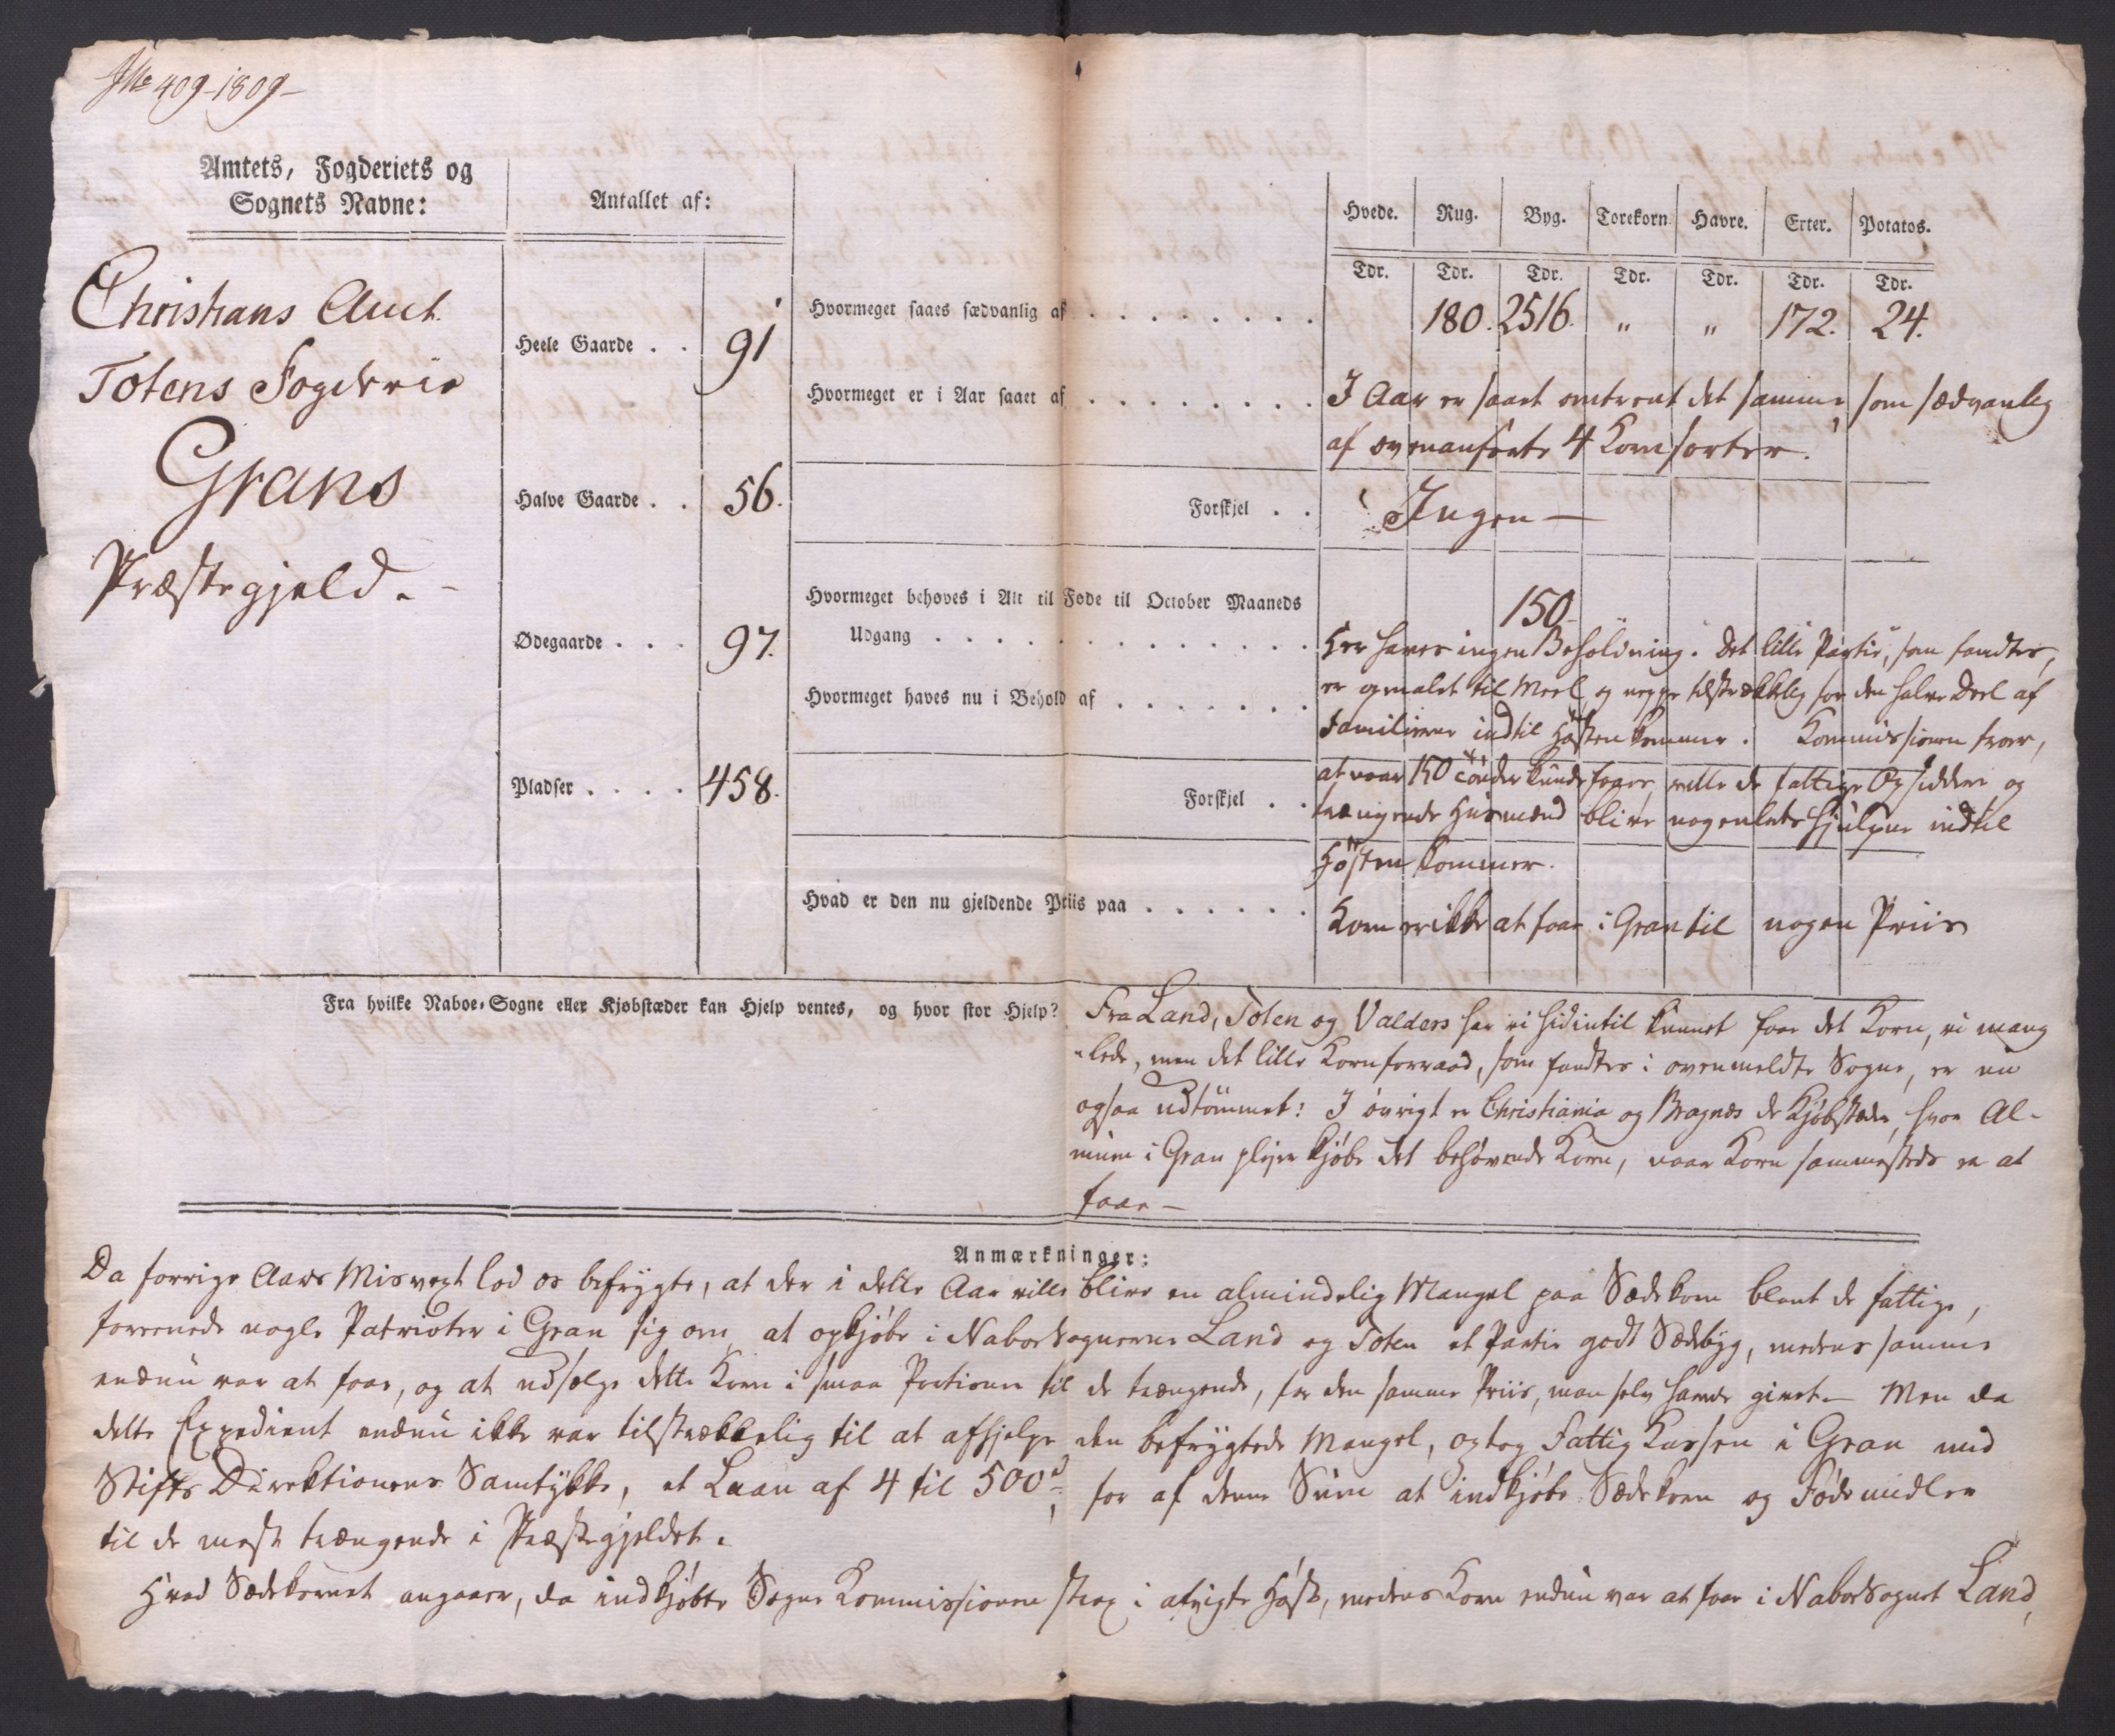 No 409-1809-
Amtets, Fogderiets og
Sognets Navne:
Antallet af:
Hvede. Rug. Byg. Torekorn Havre. Erter. Potatos.
Tdr. Tdr. Tdr. Tdr. Tdr. Tdr. Tdr.
Christians Amt
Totens Fogderie
Grans
Præstegjeld.-
Heele Gaarde . . 91
Halve Gaarde . . 56.
Ødegaarde . . . 97.
Pladser . . . . 458.
Hvormeget saaes sædvanlig af . . . . . . . . 180. 2516. " " 172. 24.
Hvormeget er i Aar saaet af . . . . . . . . I Aar er saaet omtrent det samme som sædvanlig
af ovenanførte 4 Kornsorter.
Forskjel . . Ingen —
Hvormeget behøves i Alt til Føde til October Maaneds
Udgang . . . . . . . . . . . . . 150
Hvormeget haves nu i Behold af . . . . . . .
Her haves ingen Beholdning. Det lille Partie, som fandtes,
er opmalet til Meel, og neppe tilstrækkelig for den halve Deel af
Familierne indtil Høsten kommer. Kommissionen troer,
Forskjel . .
at naar 150 Tønder kunde faaes, ville de fattige Opsiddere og
trængende Husmænd blive nogenlede hjulpne indtil
Høsten kommer.
Hvad er den nu gjeldende Priis paa . . . . . . Korn er ikke at faae i Gran til nogen Priis
Fra hvilke Naboe-Sogne eller Kjøbstæder kan Hjelp ventes, og hvor stor Hjelp?
Fra Land, Toten og Valders har vi hidintil kunnet faae det Korn, vi mang
"lede, men det lille Kornforraad, som fandtes i ovenmeldte Sogne, er nu
ogsaa udtømmet: I øvrigt er Christiania og Bragnæs de Kjøbstæder, hvor Al-
muen i Gran pleier kjøbe det behøvende Korn, naar Korn sammesteds er at
faae —
Anmærkninger:
Da forrige Aars Misvext lod os befrygte, at der i dette Aar ville blive en almindelig Mangel paa Sædekorn blant de fattige,
foreenede nogle Patrioter i Gran sig om, at opkjøbe i Naboesognerne Land og Toten et Partie godt Sædebyg, medens samme
endnu var at faae, og at udsælge dette Korn i smaa Portioner til de trængende, for den samme Priis, man selv havde givet. — Men da
dette Expedient endnu ikke var tilstrækkelig til at afhjelpe den befrygtede Mangel, optog Fattig Kassen i Gran med
Stifts Direktionens Samtykke, et Laan af 4 til 500 d, for af denne Sum at indkjøbe Sædekorn og Fødemidler
til de mest trængende i Præstegjeldet.
Hvad Sædekornet angaaer, da indkjøbte Sogne Kommissionen strax i afvigte Høst, medens Korn endnu var at faae i Naboesognet Land,